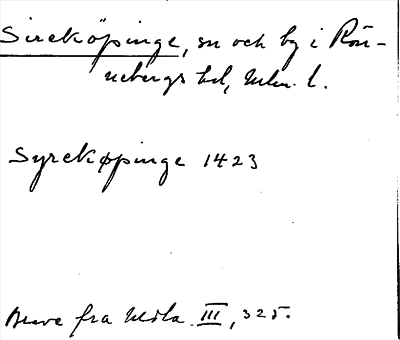 Sireköpinge, sn och by i Rön-
nebergs hd, Mlm. l.
Syrekøpinge 1423
fra III, 325.